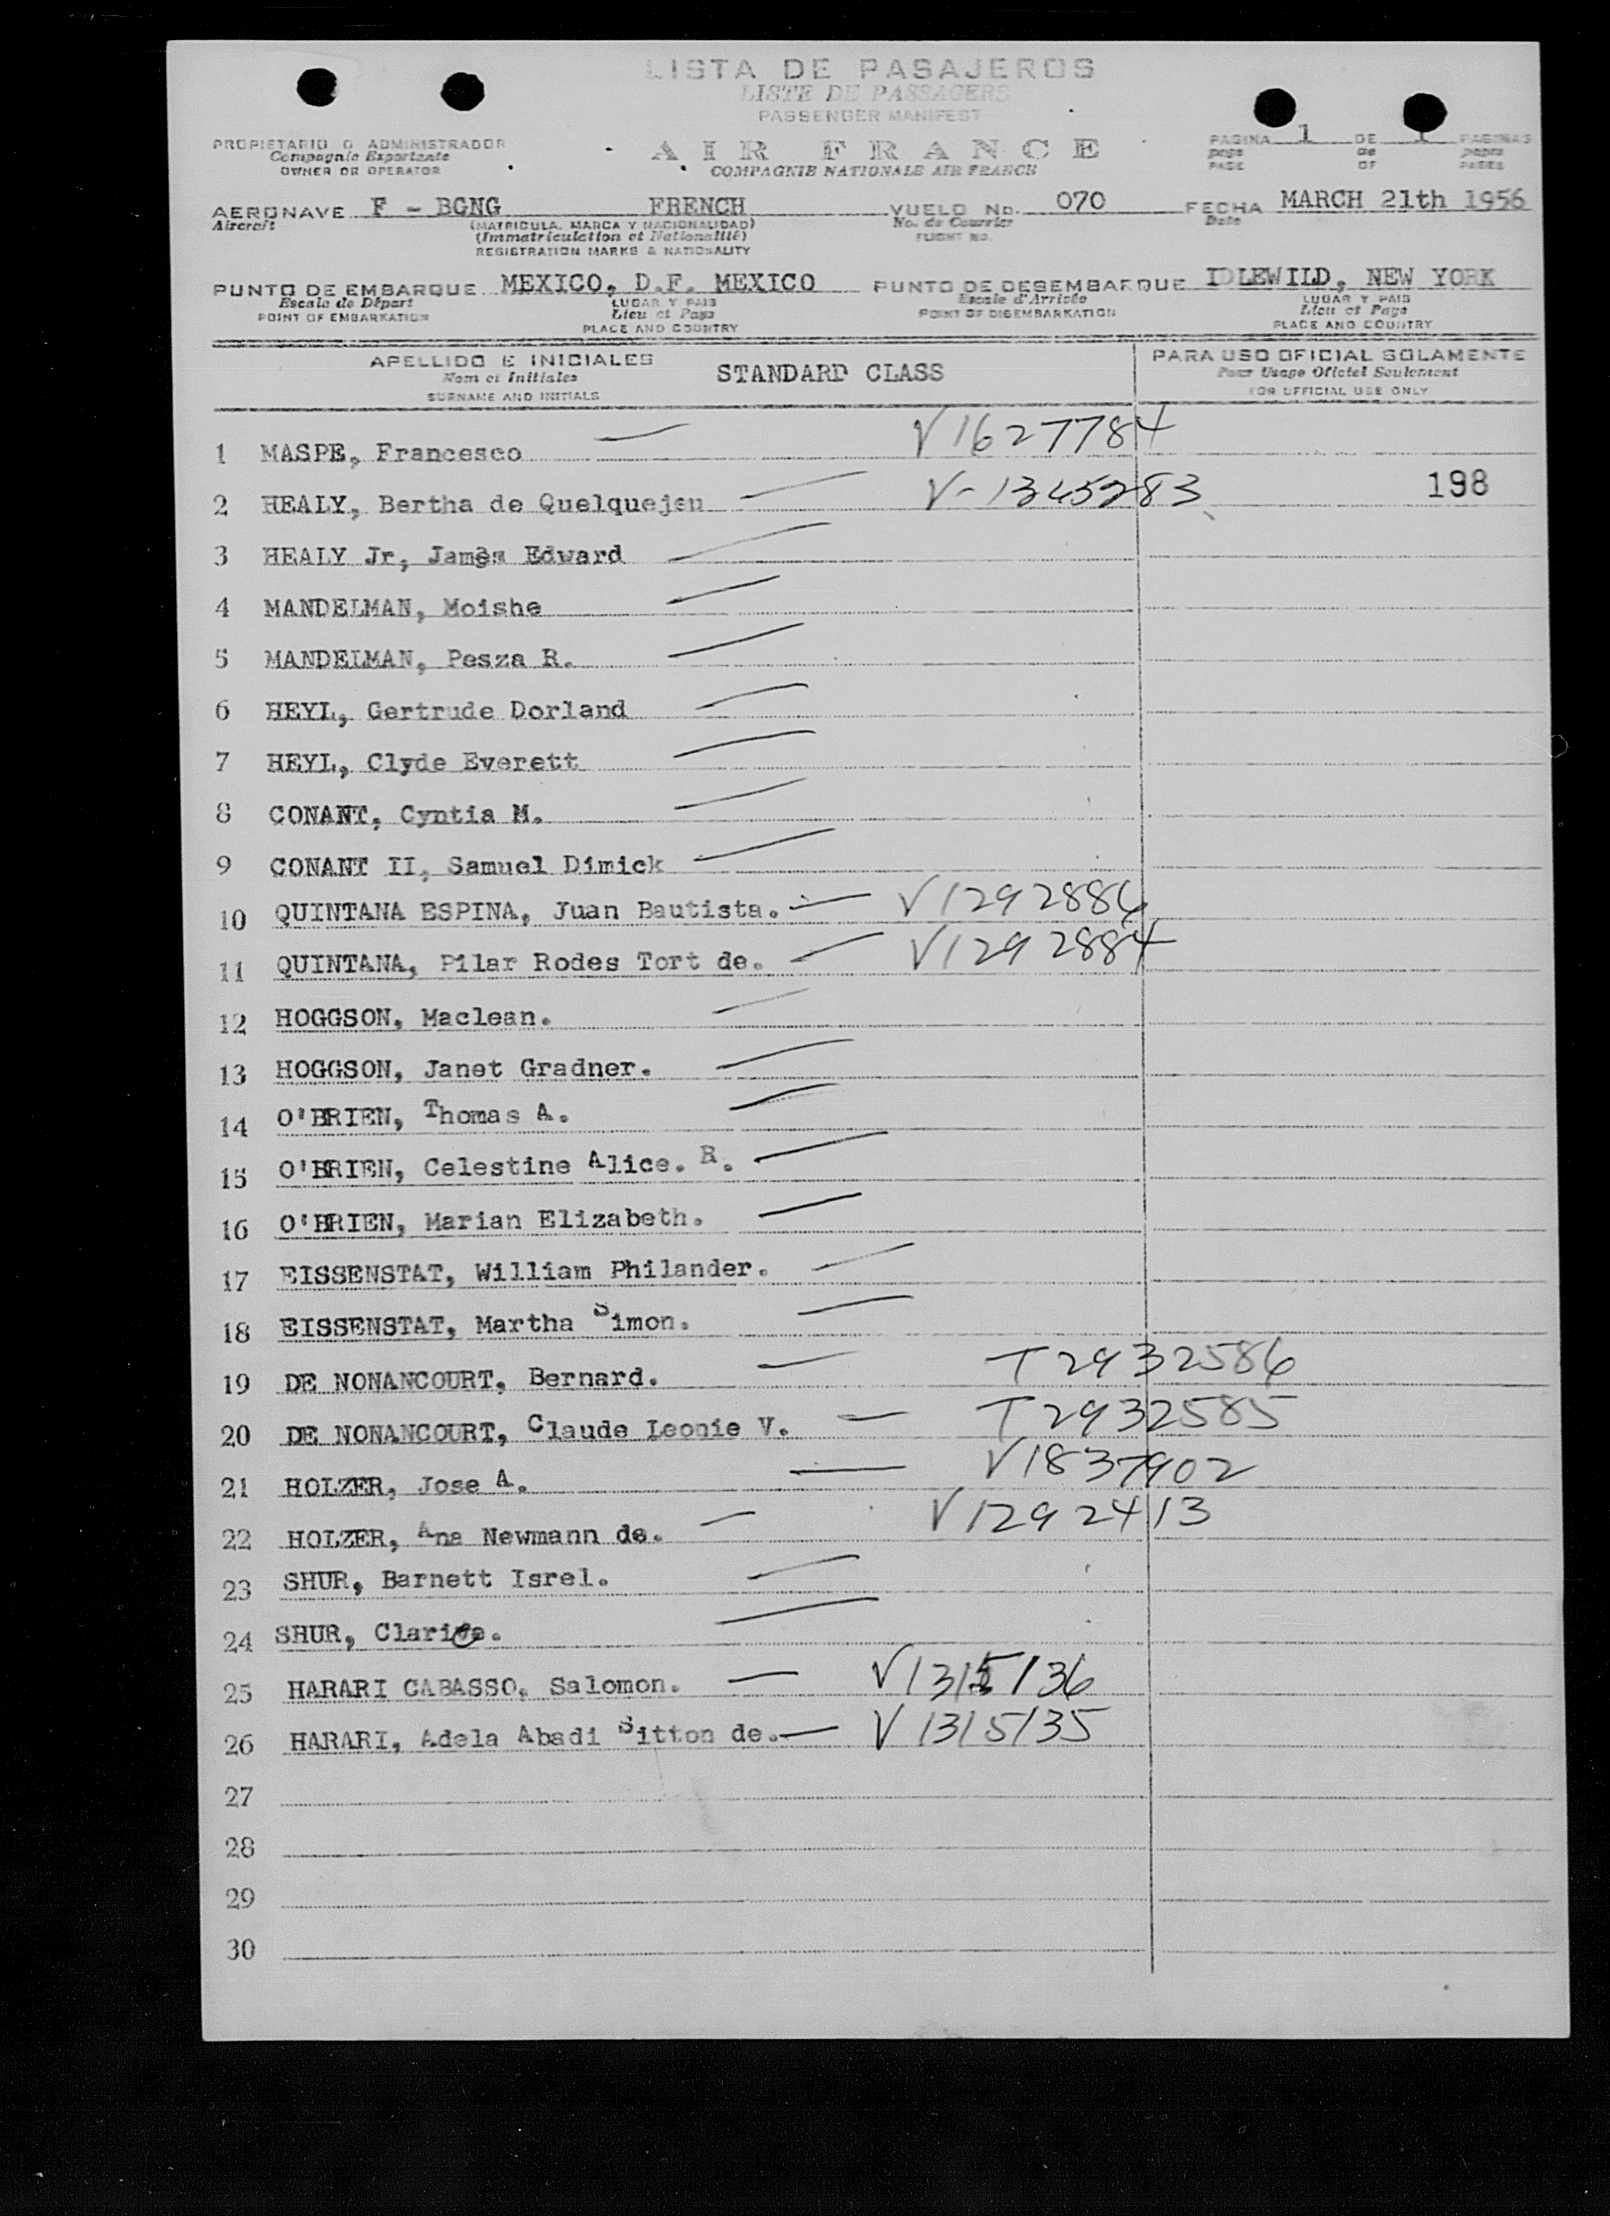 LISTA DE PASAJEROS
LISTE DE PASSAGERS
PASSENGER MANIFEST
PROPIETARIO O ADMINISTRADOR
Compagnie Exportante
OWNER OR OPERATOR
AIR FRANCE
COMPAGNIE NATIONALE AIR FRANCE
PAGINA 1 DE 1 PAGINAS
page de pages
PAGE OF PAGES
AERONAVE F - BGNG FRENCH VUELO No. 070 FECHA MARCH 21th 1956
Aircraft (MATRICULA, MARCA Y NACIONALIDAD) No. de Courrier Date
(Immatriculation et Nationalité) FLIGHT NO.
REGISTRATION MARKS & NATIONALITY
PUNTO DE EMBARQUE MEXICO, D.F. MEXICO PUNTO DE DESEMBARQUE IDLEWILD, NEW YORK
Escale de Départ LUGAR Y PAIS Escale d'Arrivée LUGAR Y PAIS
POINT OF EMBARKATION Lieu et Pays POINT OF DISEMBARKATION Lieu et Pays
PLACE AND COUNTRY PLACE AND COUNTRY
APELLIDO E INICIALES STANDARD CLASS PARA USO OFICIAL SOLAMENTE
Nom et Initiales Pour Usage Oficiel Seulement
SURNAME AND INITIALS FOR OFFICIAL USE ONLY
1 MASPE, Francesco V1627784
2 HEALY, Bertha de Quelquejeu V-1345283 198
3 HEALY Jr, James Edward
4 MANDELMAN, Moishe
5 MANDELMAN, Pesza R.
6 HEYL, Gertrude Dorland
7 HEYL, Clyde Everett
8 CONANT, Cyntia M.
9 CONANT II, Samuel Dimick
10 QUINTANA ESPINA, Juan Bautista. V1292886
11 QUINTANA, Pilar Rodes Tort de. V1292884
12 HOGGSON, Maclean.
13 HOGGSON, Janet Gradner.
14 O'BRIEN, Thomas A.
15 O'BRIEN, Celestine Alice. R.
16 O'BRIEN, Marian Elizabeth.
17 EISSENSTAT, William Philander.
18 EISSENSTAT, Martha Simon.
19 DE NONANCOURT, Bernard. T2932586
20 DE NONANCOURT, Claude Leonie V. T2932585
21 HOLZER, Jose A. V1837902
22 HOLZER, Ana Newmann de. V1292413
23 SHUR, Barnett Isrel.
24 SHUR,
25 HARARI CABASSO, Salomon. V1315136
26 HARARI, Adela Abadi Sitton de. V1315135
27
28
29
30